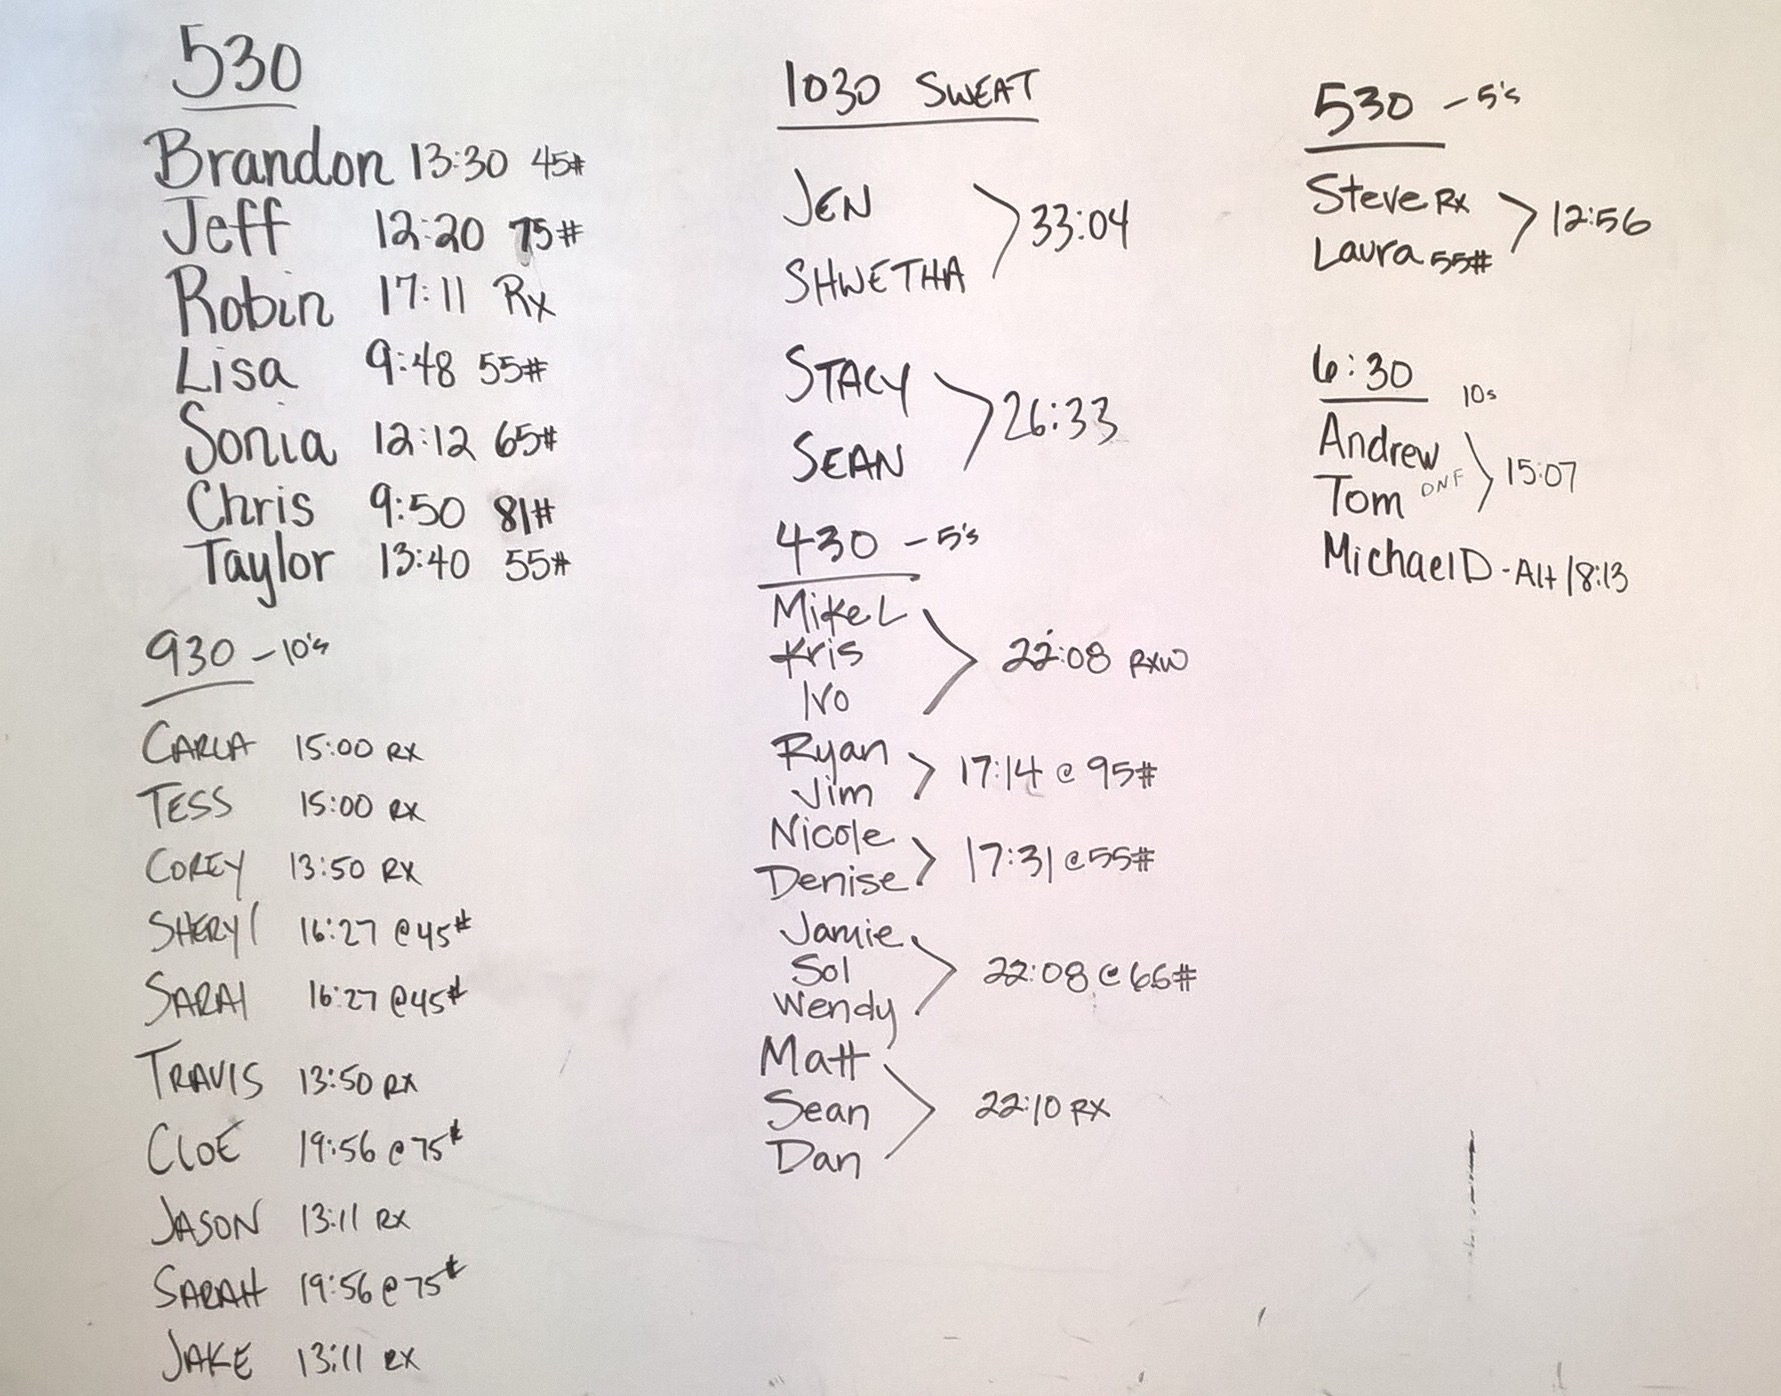 530
Brandon 13:30 45#
Jeff 12:20 75#
Robin 17:11 Rx
Lisa 9:48 55#
Sonia 12:12 65#
Chris 9:50 81#
Taylor 13:40 55#
930 - 10's
CARLA 15:00 RX
TESS 15:00 RX
COREY 13:50 RX
SHERYL 16:27 @45#
SARAI 16:27 @45#
TRAVIS 13:50 RX
CLOE 19:56 @75#
JASON 13:11 RX
SARAH 19:56 @75#
JAKE 13:11 RX
1030 SWEAT
JEN
33:04
SHWETHA
STACY
26:33
SEAN
430 - 5's
Mike L
Kris 22:08 RXW
Ivo
Ryan
17:14 @ 95#
Jim
Nicole
17:31 @55#
Denise
Jamie
Sol 22:08 @ 65#
Wendy
Matt
Sean 22:10 RX
Dan
530 - 5's
Steve Rx
12:56
Laura 55#
6:30 10s
Andrew
15:07
Tom DNF
Michael D - Alt 18:13